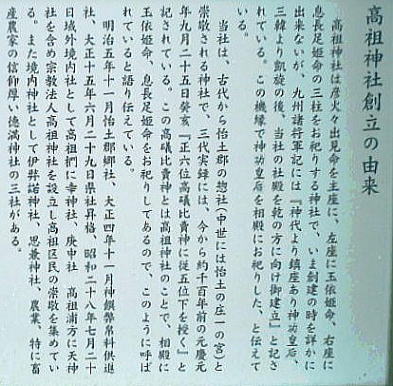 高祖神社創立の由来
高祖神社は彦火々出見命を主座に、左座に玉依姫命、右座に
息長足姫命の三柱をお祀りする神社で、いま創建の時を詳かに
出来ないが、九州諸将軍記には『神代より鎮座あり神功皇后、
三韓より凱旋の後、当社の社殿を乾の方に向け御建立』と記さ
れている。この機縁で神功皇后を相殿にお祀りした、と伝えて
いる。
当社は、古代から怡土郡の惣社(中世には怡土の庄一の宮)と
崇敬される神社で、三代実録には、今から約千百年前の元慶元
年九月二十五日癸亥『正六位高礒比賣神に従五位下を授く』と
記されている。この高礒比賣神とは高祖神社のことで、相殿に
玉依姫命、息長足姫命をお祀りしてあるので、このように呼ば
れていると語り伝えている。
明治五年十一月怡土郡郷社、大正四年十一月神饌幣帛料供進
社、大正十五年六月二十九日県社昇格、昭和二十八年七月二十
日域外境内社として高祖椚に幸神社、庚申社 高祖浦方に天神
社を含め宗教法人高祖神社を設立し高祖区民の崇敬を集めてい
る。また境内神社として伊弉諾神社、思兼神社、農業、特に畜
産農家の信仰厚い徳満神社の三社がある。